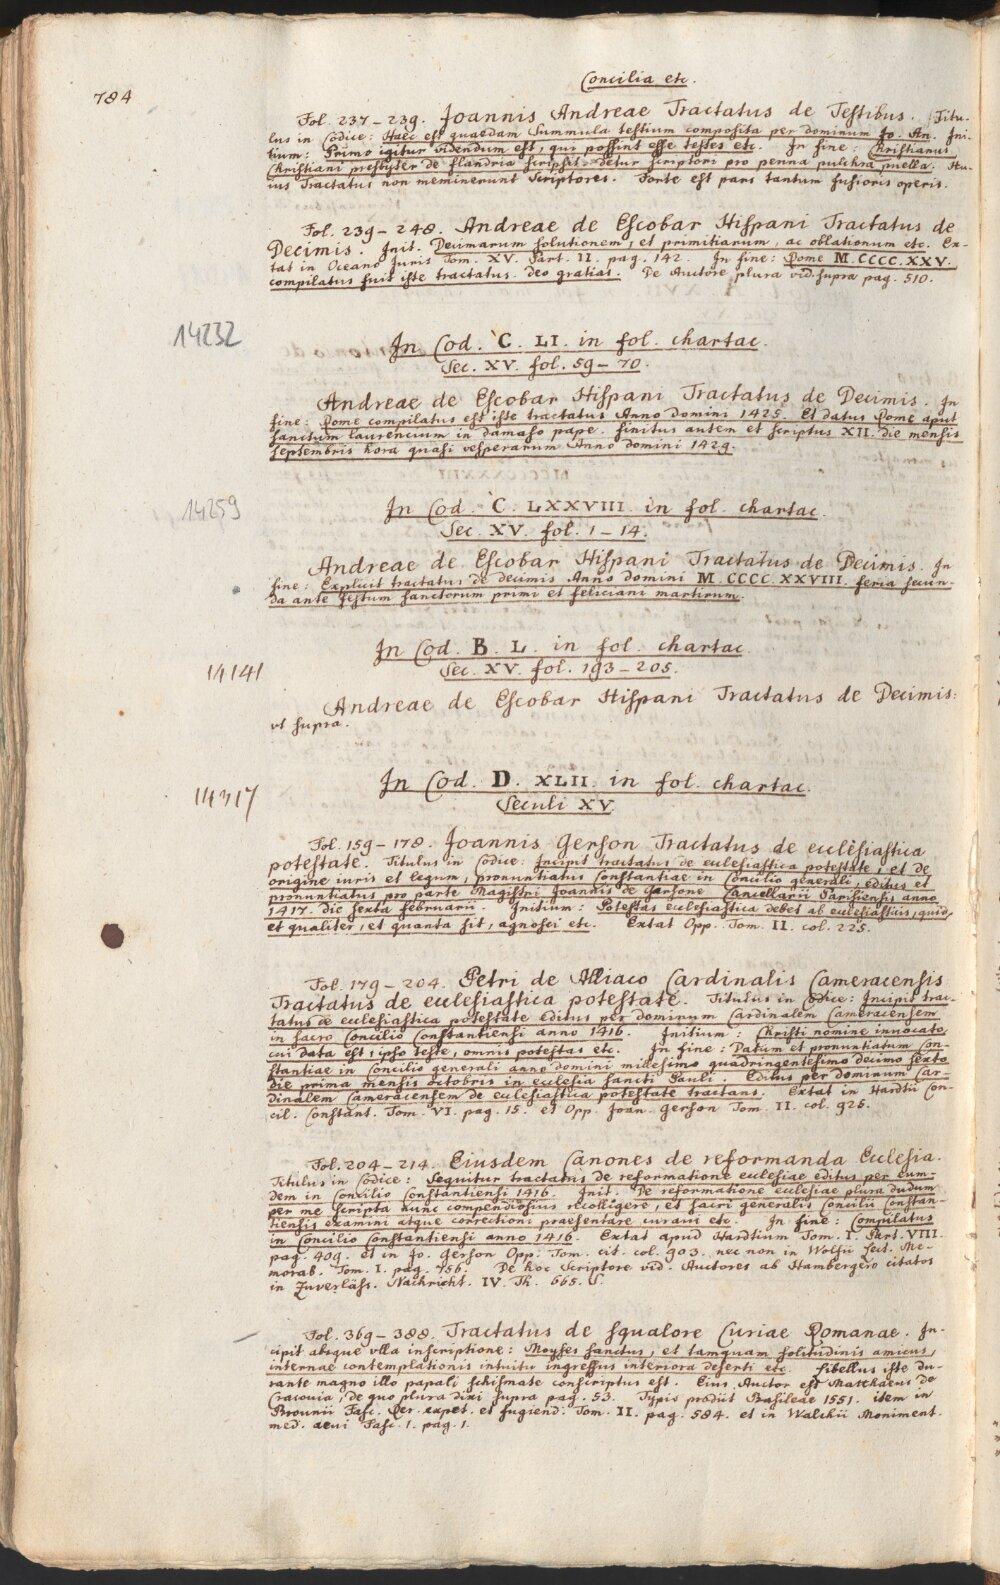 Concilia etc.
784
Fol. 237–239. Joannis Andreae Tractatus de Testibus. Titu-
lus in Codice: Haec est quaedam Summula testium composita per dominum Jo. An. Ini-
tium: Primo igitur videndum est, qui possint esse testes etc. In fine: Christianus
Christiani presbyter de flandria scripsit. Detur scriptori pro penna pulchra puella. Hu-
ius Tractatus non meminerunt Scriptores. Forte est pars tantum fusioris operis.
Fol. 239–248. Andreae de Escobar Hispani Tractatus de
Decimis. Init. Decimarum solutionem, et primitiarum, ac oblationum etc. Ex-
tat in Oceano Juris Tom. XV. Part. II. pag. 142. In fine: Rome M.CCCC.XXV.
compilatus fuit iste tractatus. deo gratias. De Auctore plura vid. supra pag. 510.
14232
In Cod. C. LI. in fol. chartac.
Sec. XV. fol. 59–70.
Andreae de Escobar Hispani Tractatus de Decimis. In
fine: Rome compilatus est iste tractatus Anno Domini 1425. Et datus Rome aput
sanctum laurencium in damaso pape. finitus autem et scriptus XII. die mensis
septembris hora quasi vesperarum Anno domini 1429.
14259
In Cod. C. LXXVIII. in fol. chartac.
Sec. XV. fol. 1–14.
Andreae de Escobar Hispani Tractatus de Decimis. In
fine: Explicit tractatus de decimis Anno domini M.CCCC.XXVIII. feria secun-
da ante festum sanctorum primi et feliciani martirum.
14141
In Cod. B. L. in fol. chartac.
Sec. XV. fol. 193–205.
Andreae de Escobar Hispani Tractatus de Decimis:
vt supra.
14317
In Cod. D. XLII. in fol. chartac.
Seculi XV.
Fol. 159–178. Joannis Gerson Tractatus de ecclesiastica
potestate. Titulus in Codice: Incipit tractatus de ecclesiastica potestate, et de
origine iuris et legum, pronuntiatus Constantiae in Concilio generali, editus et
pronuntiatus pro parte Magistri Joannis de Garsone Cancellarii Parisiensis anno
1417. die sexta februarii. Initium: Potestas ecclesiastica debet ab ecclesiasticis, quid,
et qualiter, et quanta sit, agnosci etc. Extat Opp. Tom. II. col. 225.
Fol. 179–204. Petri de Alliaco Cardinalis Cameracensis
Tractatus de ecclesiastica potestate. Titulus in Codice: Incipit trac-
tatus de ecclesiastica potestate editus per dominum Cardinalem Cameracensem
in sacro Concilio Constantiensi anno 1416. Initium: Christi nomine invocato,
cui data est, ipso teste, omnis potestas etc. In fine: Datum et pronuntiatum Con-
stantiae in Concilio generali anno domini millesimo quadringentesimo decimo sexto
die prima mensis octobris in ecclesia sancti Pauli. Editus per dominum Car-
dinalem Cameracensem de ecclesiastica potestate tractans. Extat in Hardtii Con-
cil. Constant. Tom. VI. pag. 15. et Opp. Joan. Gerson Tom. II. col. 925.
Fol. 204–214. Eiusdem Canones de reformanda Ecclesia.
Titulus in Codice: Sequitur tractatus de reformatione ecclesiae editus per eun-
dem in Concilio Constantiensi 1416. Init. De reformatione ecclesiae plura dudum
per me scripta nunc compendiosius recolligere, et sacri generalis Concilii Constan-
tiensis examini atque correctioni praesentare curavi etc. In fine: Compilatus
in Concilio Constantiensi anno 1416. Extat apud Hardtium Tom. I. Part. VIII.
pag. 409. et in Jo. Gerson Opp. Tom. cit. col. 903. nec non in Wolfii Lect. Me-
morab. Tom. I. pag. 756. De hoc Scriptore vid. Auctores ab Hambergero citatos
in Zuverläss. Nachricht. IV. Th. 665. S.
Fol. 369–388. Tractatus de squalore Curiae Romanae. In-
cipit absque vlla inscriptione: Moyses sanctus, et tamquam solitudinis amicus,
internae contemplationis intuitu ingressus interiora deserti etc. Libellus iste du-
rante magno illo papali schismate conscriptus est. Eius Auctor est Matthaeus de
Cracovia, de quo plura dixi supra pag. 53. Typis prodiit Basileae 1551. item in
Brounii Fasc. Rer. expet. et fugiend. Tom. II. pag. 584. et in Walchii Moniment.
med. aevi Fasc. 1. pag. 1.